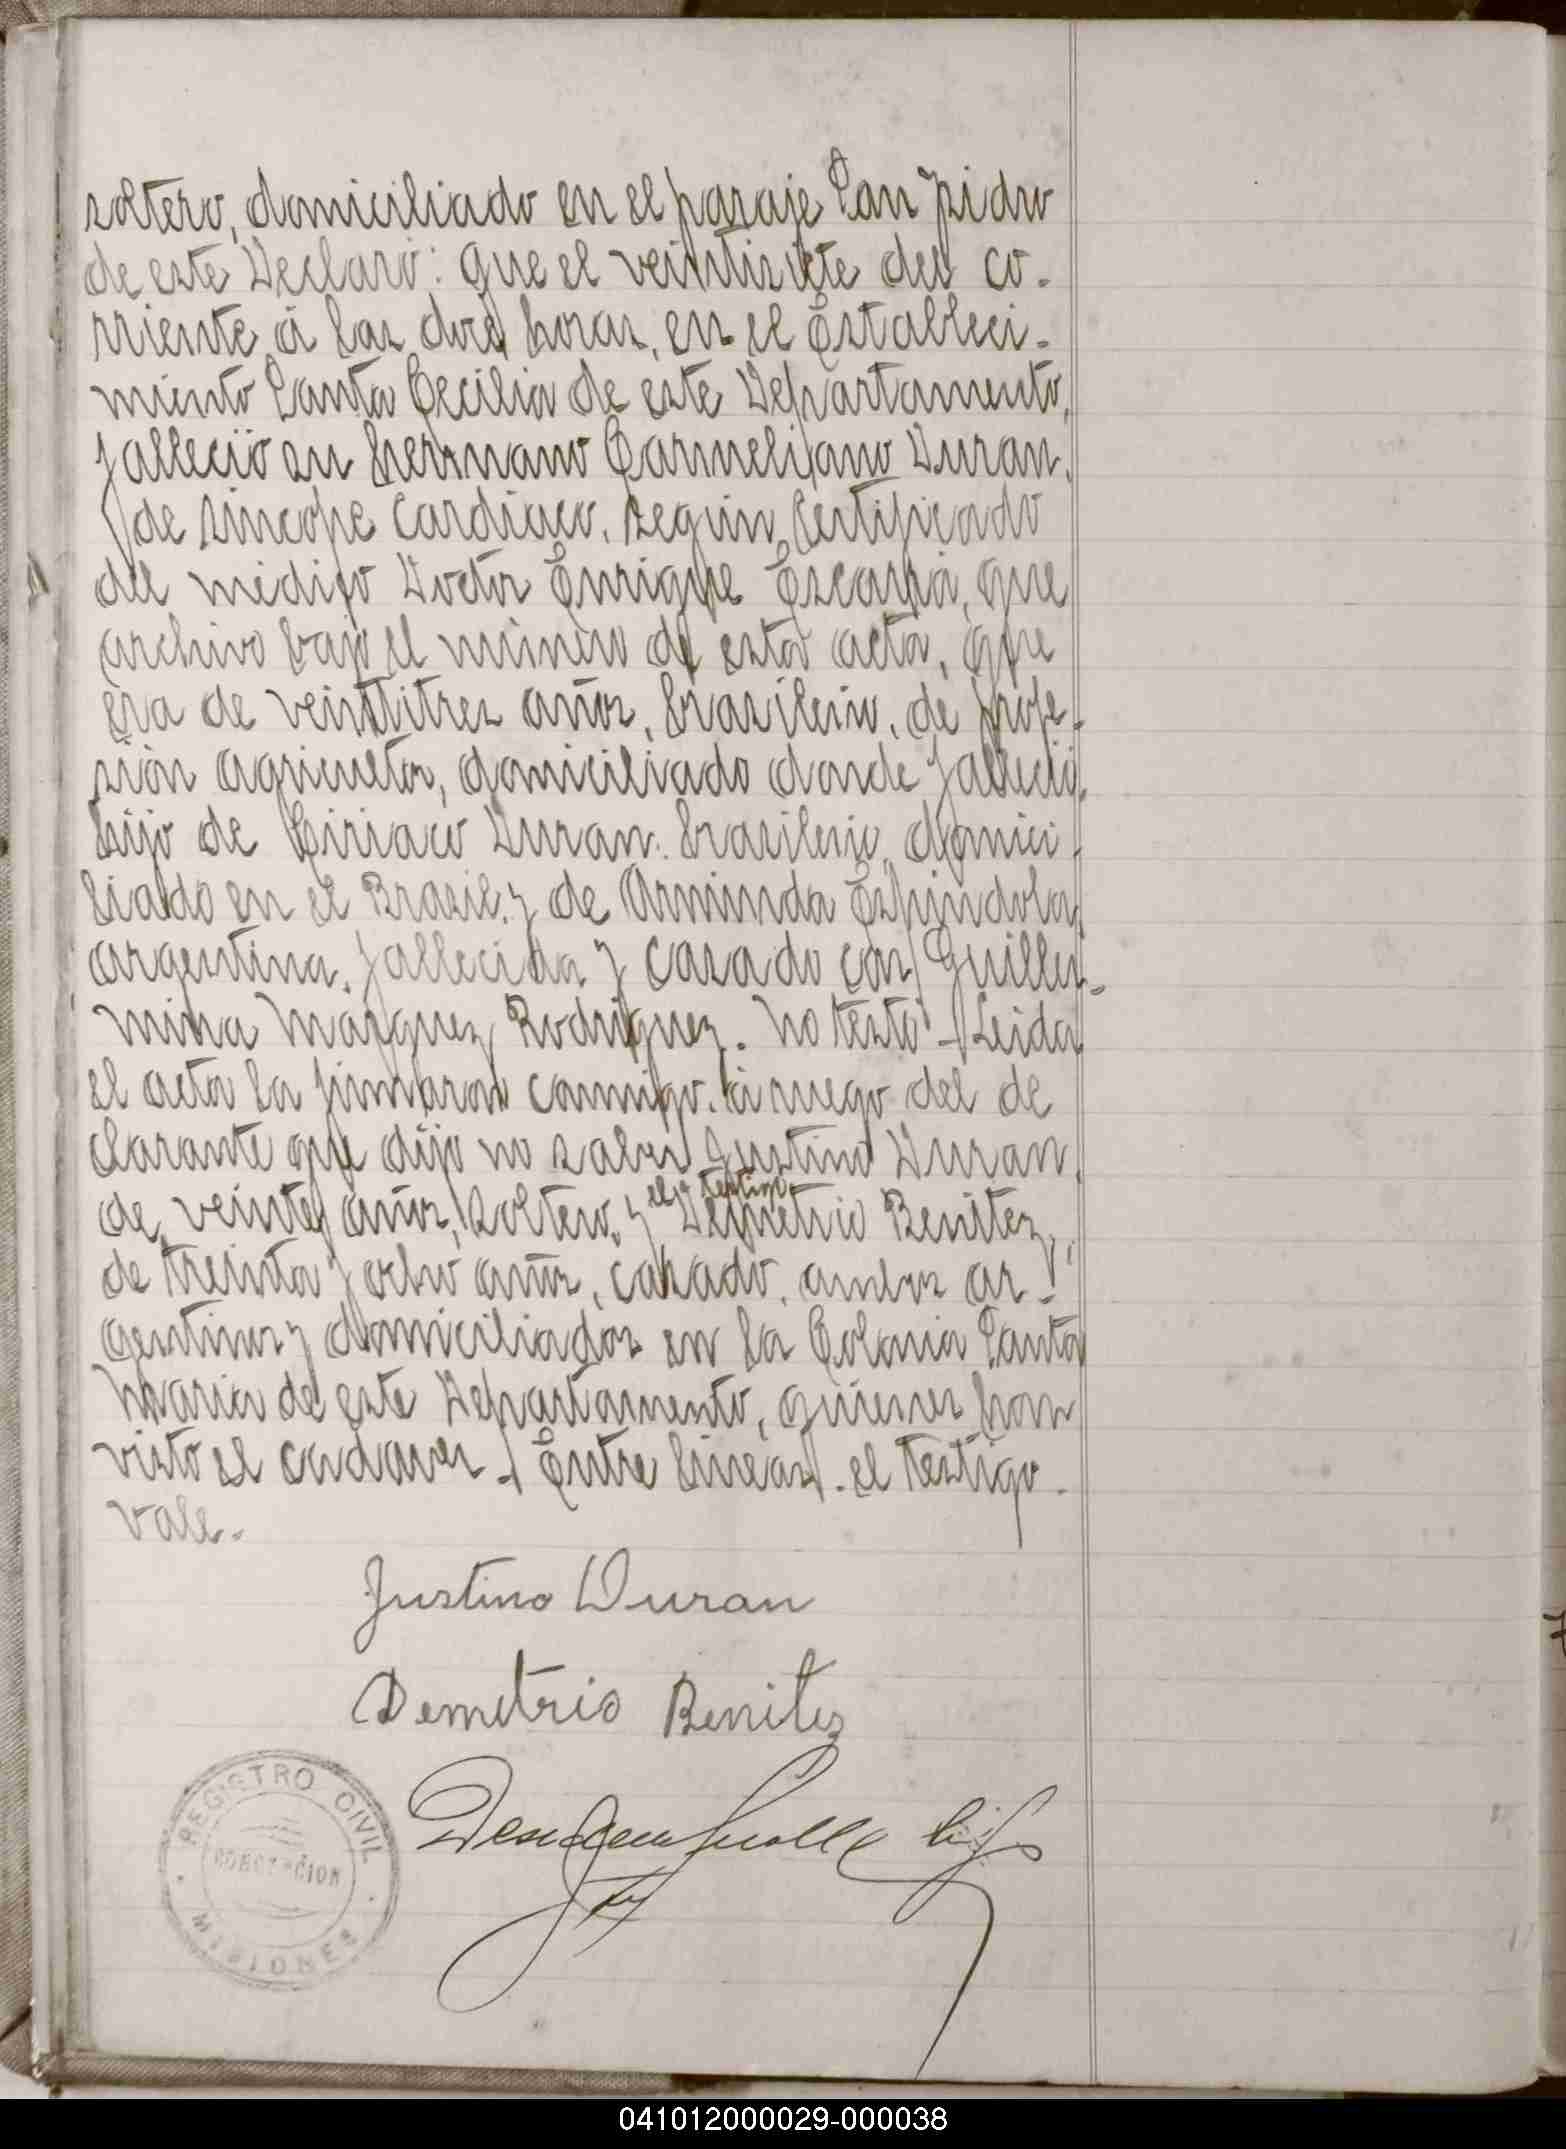 soltero, domiciliado en el paraje San Isidro
de este Declaró: que el veintisiete del co-
rriente á las doce horas, en el Estableci-
miento Santa Cecilia de este Departamento,
falleció su hermano Carmeliano Duran,
de síncope cardiaco, según certificado
del médico Doctor Enrique Escarrá, que
archivo bajo el número de esta acta, que
era de veintitres años, brasilero, de profe-
sión agricultor, domiciliado donde falleció,
hijo de Ciriaco Duran, brasilero, domici-
liado en el Brasil, y de Arminda Espindola
argentina, fallecida y casado con Guiller-
mina Marquez Rodriguez. No testó - Leida
el acta la firmaron conmigo, á ruego del de
clarante que dijo no saber Justino Duran,
de veinte años, soltero, y el testigo Demetrio Benitez,
de treinta y ocho años, casado, ambos ar-
gentinos y domiciliados en la Colonia Santa
Maria de este Departamento, quienes han
visto el cadaver. - Entre lineas - el testigo -
Vale.
Justino Duran
Demetrio Benitez
hijo
REGISTRO CIVIL
CONCEPCION
MISIONES
041012000029-000038